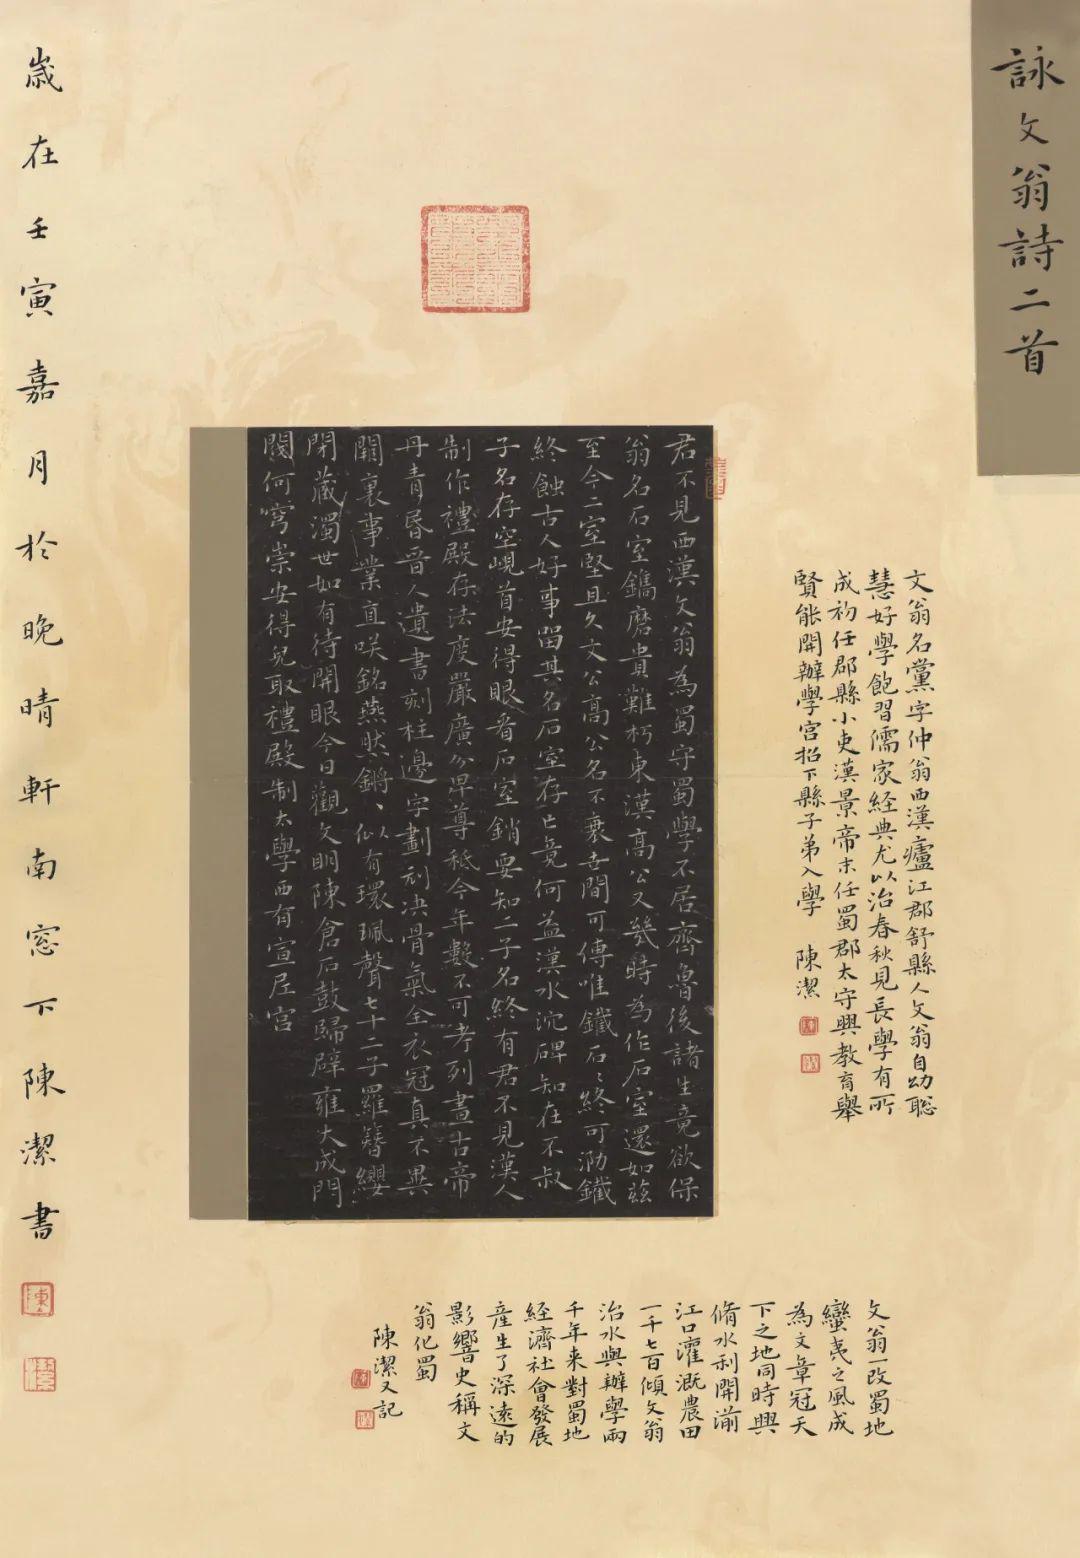 詠文翁詩二首
文翁名黨字仲翁西漢廬江郡舒縣人文翁自幼聡
慧好學飽習儒家経典尤以治春秋見長學有所
成初任郡縣小吏漢景帝末任蜀郡太守興教育舉
賢能開辦學宮招下縣子弟入學 陳潔
君不見西漢文翁為蜀守蜀學不居齊魯後諸生竟欲保
翁名石室鐫磨貴難朽東漢高公又幾時為作石室還如兹
至今二室堅且久文公高公名不衰世間可傳唯鐵石〻終可泐鐵
終蝕古人好事留其名石室存亡竟何益漢水沉碑知在不叔
子名存空峴首安得眼看石室銷要知二子名終有君不見漢人
制作禮殿存法度嚴廣分卑尊秪今年數不可考列畫古帝
丹青昏晉人遺書刻柱邊字劃刓決骨氣全衣冠真不異
闕裏事業直咲銘燕然鏘〻似有環珮聲七十二子羅簪纓
閉藏濁世如有待開眼今日觀文明陳倉石鼓歸辟雍大成門
閥何穹崇安得皃取禮殿制太學西有宣尼宮
文翁一改蜀地
蠻夷之風成
為文章冠天
下之地同時興
脩水利開湔
江口灌溉農田
一千七百傾文翁
治水與辦學兩
千年来對蜀地
経濟社會發展
産生了深遠的
影響史稱文
翁化蜀
陳潔又記
歲在壬寅嘉月於晚晴軒南窓下陳潔書